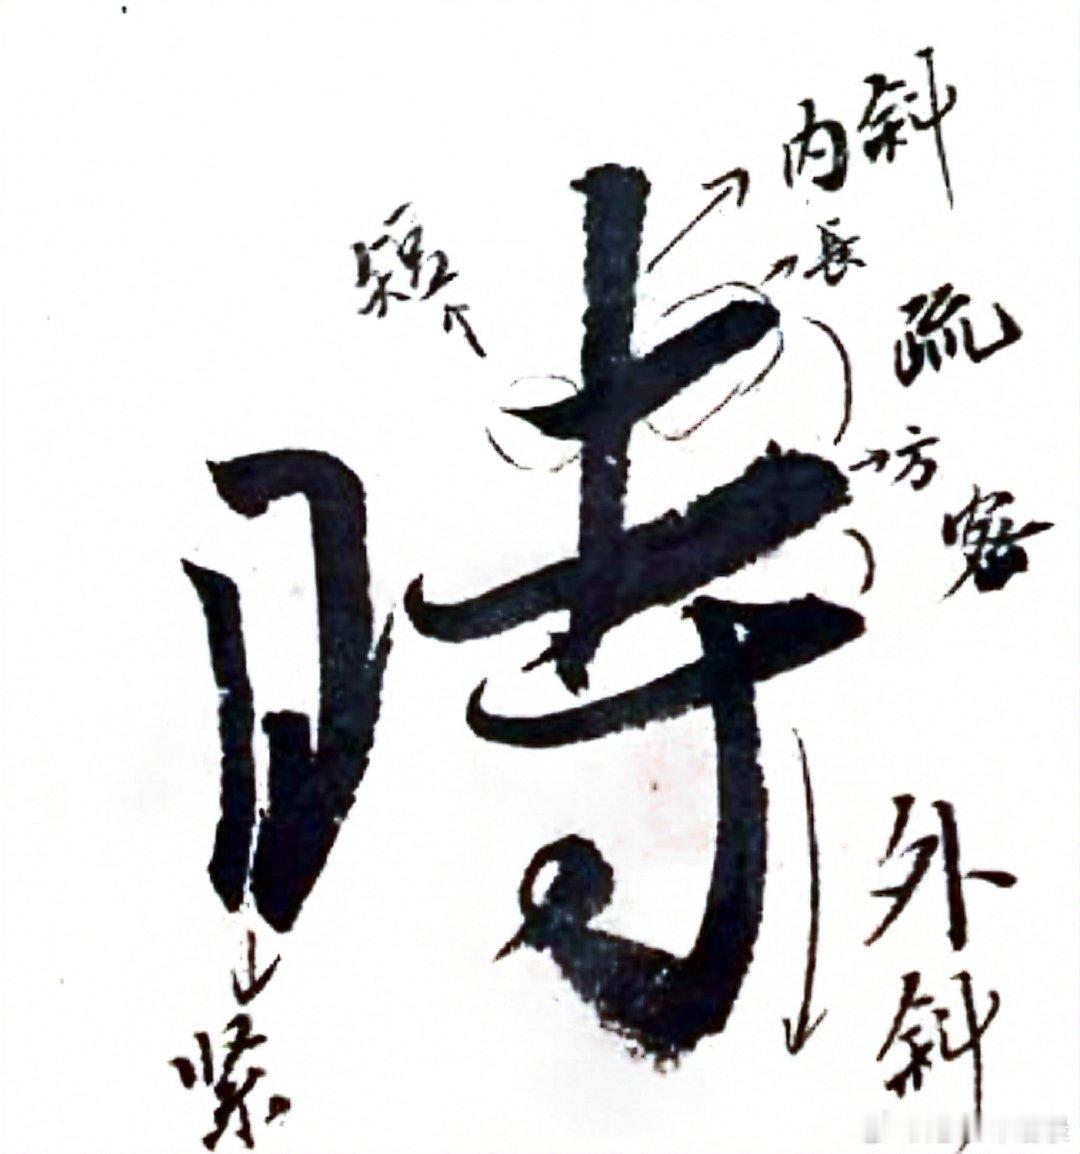 時
内斜
短
長
疏
方
密
外
斜
紧